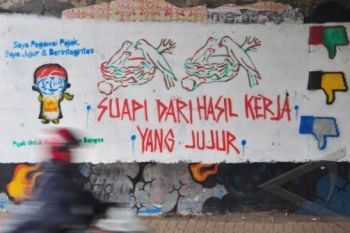 Saya Pegawai Pajak,
Saya Jujur & Berintegritas
SUAPI DARI HASIL KERJA
YANG JUJUR
Pajak Untuk
Bangsa